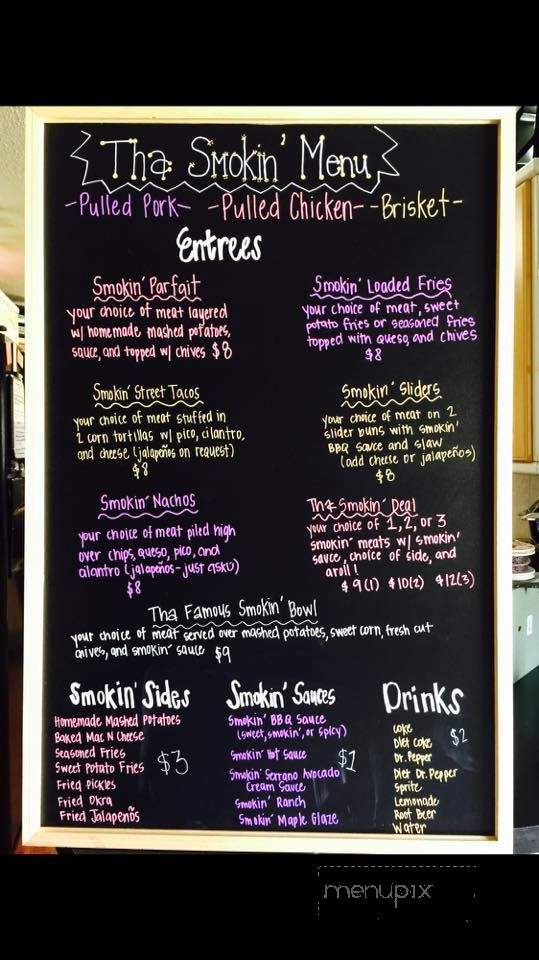 Tha Smokin' Menu
-Pulled Pork- -Pulled Chicken- -Brisket-
Entrees
Smokin' Parfait
your choice of meat layered
w/ homemade mashed potatoes,
sauce, and topped w/ chives $8
Smokin' Loaded Fries
your choice of meat, sweet
potato fries or seasoned fries
topped with queso, and chives
$8
Smokin' Street Tacos
your choice of meat stuffed in
2 corn tortillas w/ pico, cilantro,
and cheese (jalapeños on request)
$8
Smokin' Sliders
your choice of meat on 2
slider buns with smokin'
BBQ sauce and slaw
(add cheese or jalapeños)
$8
Smokin' Nachos
your choice of meat piled high
over chips, queso, pico, and
cilantro (jalapeños-just ask!)
$8
Tha Smokin' Deal
your choice of 1, 2, or 3
smokin' meats w/ smokin'
sauce, choice of side, and
a roll!
$9(1) $10(2) $12(3)
Tha Famous Smokin' Bowl
your choice of meat served over mashed potatoes, sweet corn, fresh cut
chives, and smokin' sauce $9
Smokin' Sides
Homemade Mashed Potatoes
Baked Mac N Cheese
Seasoned Fries
Sweet Potato Fries $3
Fried Pickles
Fried Okra
Fried Jalapeños
Smokin' Sauces
Smokin' BBQ Sauce
(sweet, smokin', or spicy)
Smokin' Hot Sauce $1
Smokin' Serrano Avocado
Cream Sauce
Smokin' Ranch
Smokin' Maple Glaze
Drinks
Coke
Diet Coke $2
Dr. Pepper
Diet Dr. Pepper
Sprite
Lemonade
Root Beer
Water
menupix